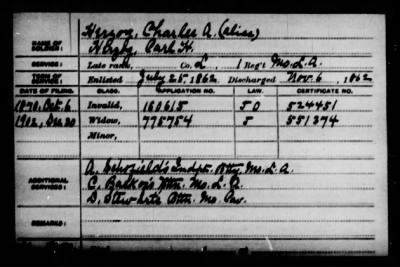 NAME OF SOLDIER: Herzog, Charles A. (alias)
Herzog, Carl H.
SERVICE: Late rank, Co. L, 1 Reg't Mo. L. A.
TERM OF SERVICE: Enlisted July 25, 1862 Discharged Nov. 6, 1862
DATE OF FILING. CLASS. APPLICATION NO. LAW. CERTIFICATE NO.
1870, Oct. 6 Invalid, 160615 50 524451
1902, Dec. 20 Widow, 775754 5 551374
Minor,
ADDITIONAL SERVICES: A. Schofield's Indpt. Btty. Mo. L. A.
C. Mo. L. A.
D. Stewarts Battn. Mo. Cav.
REMARKS: